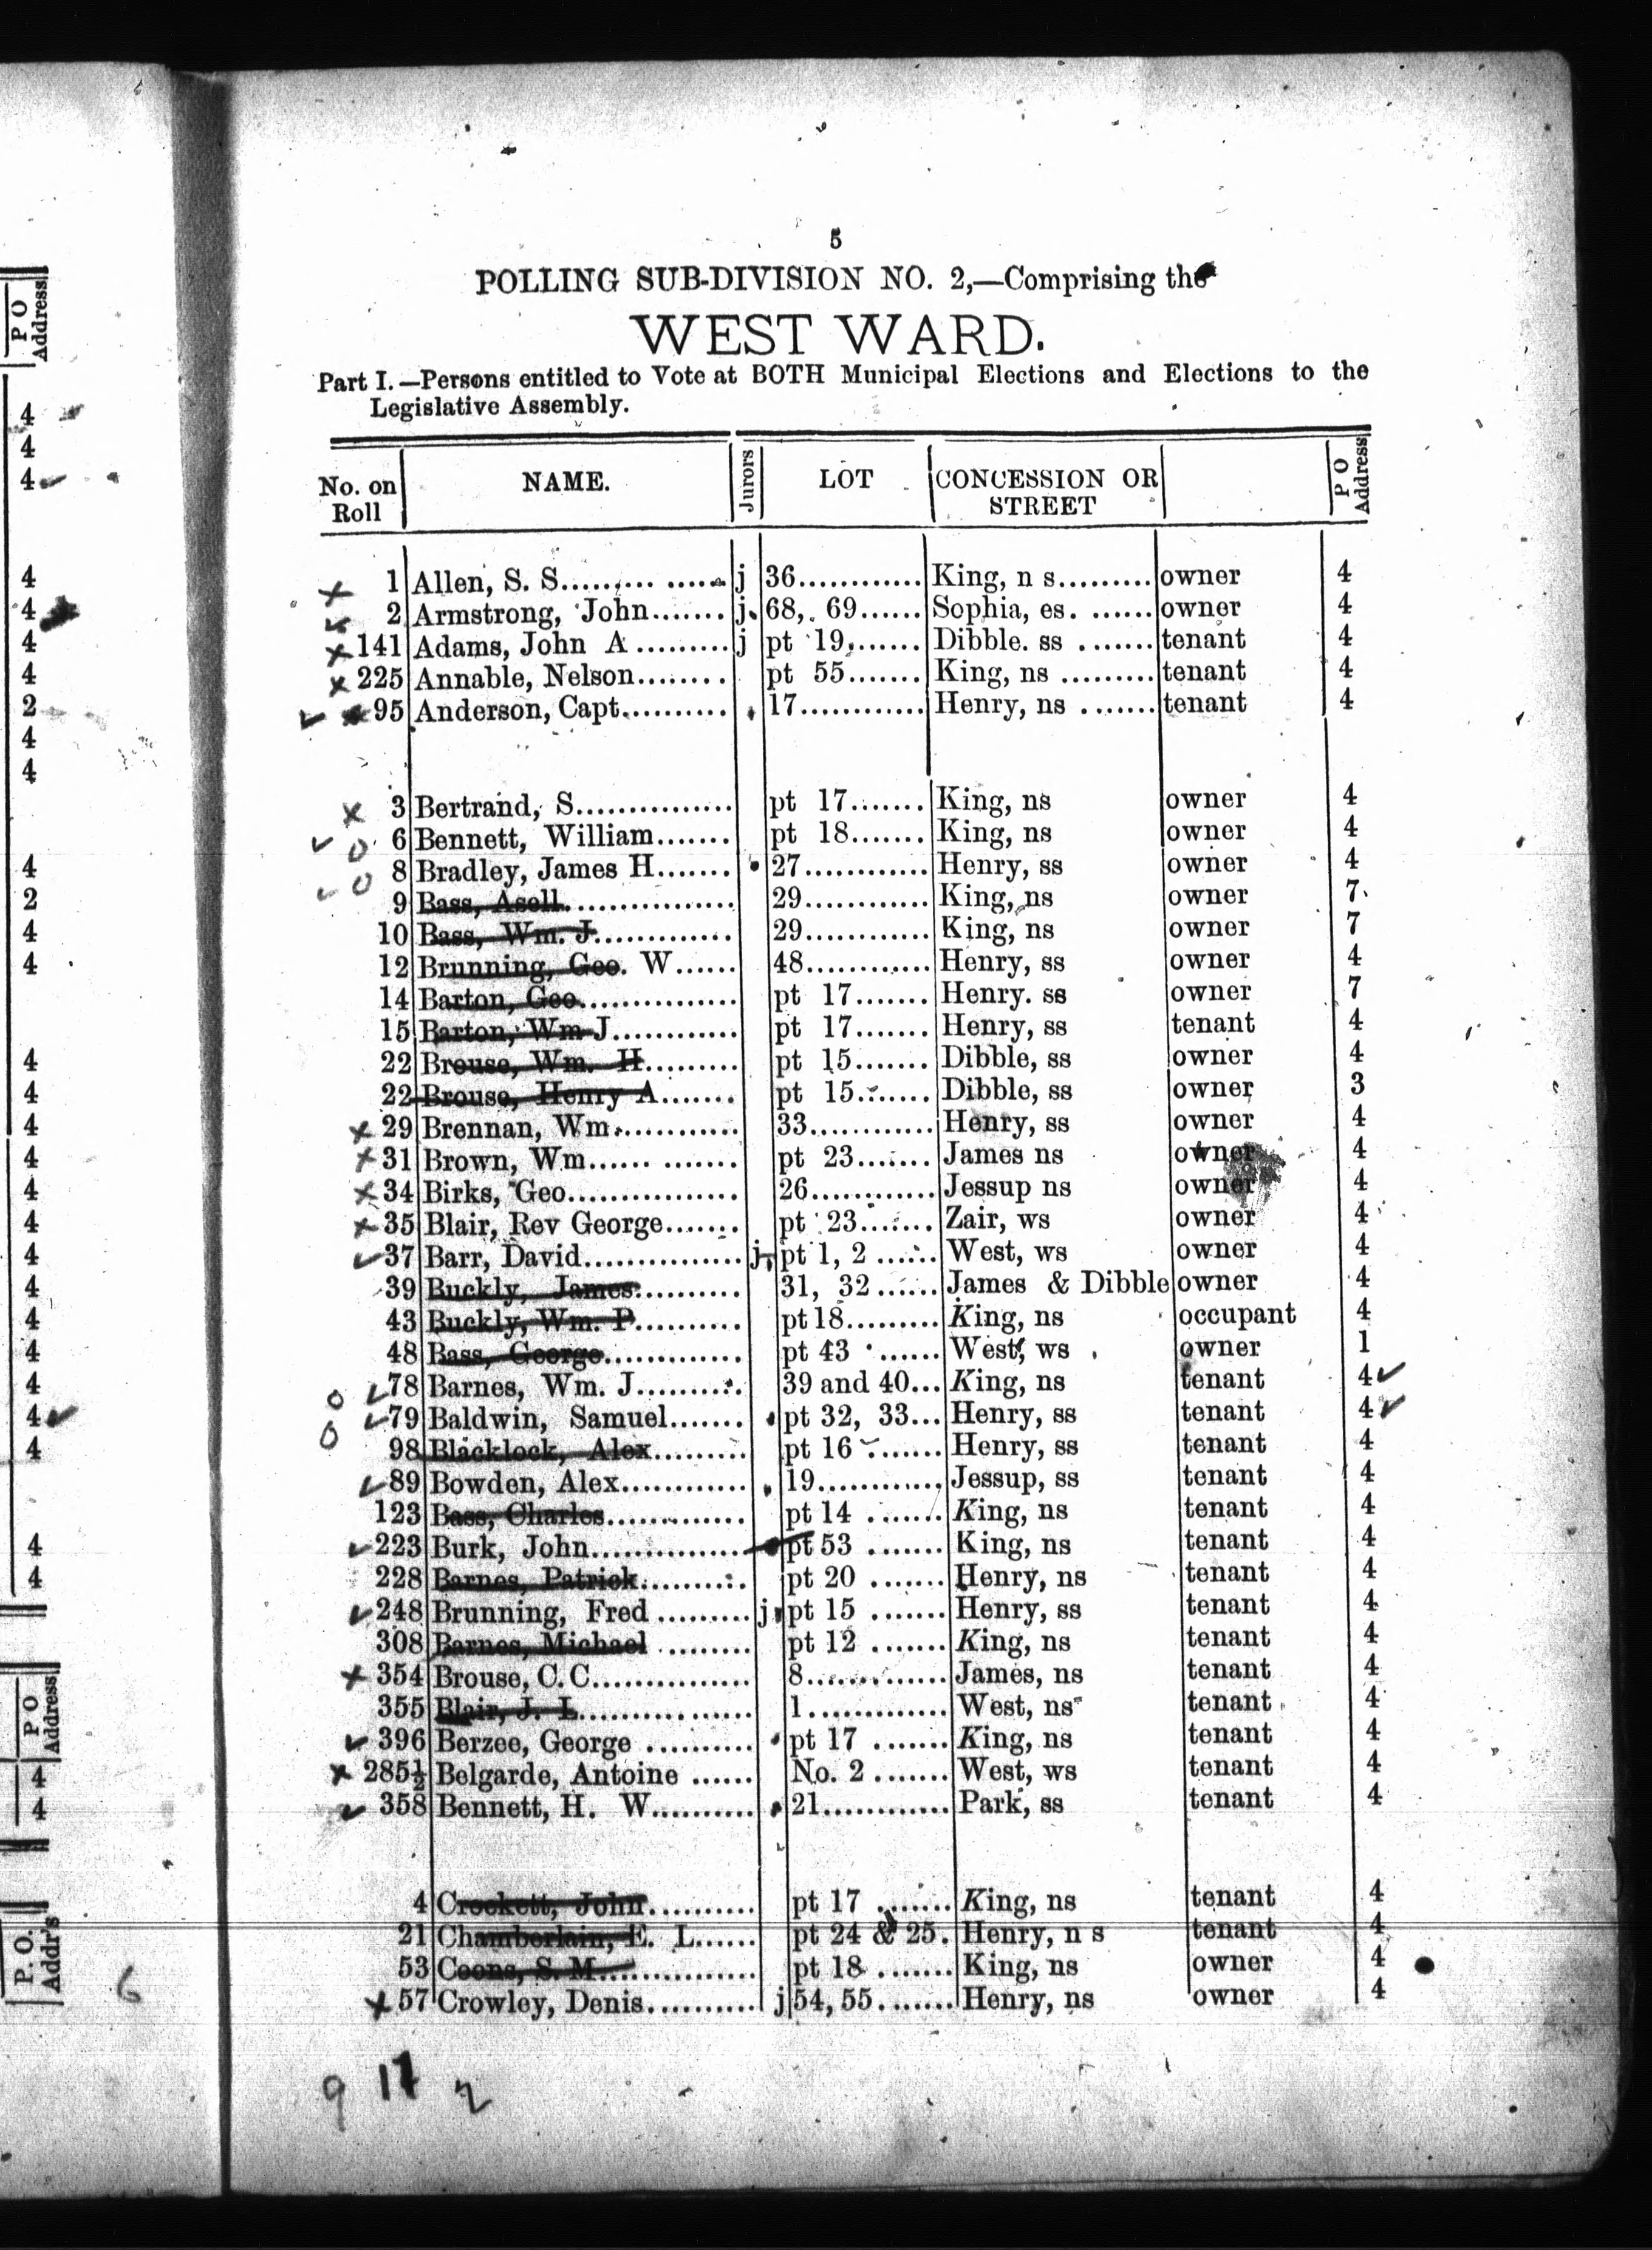 5
POLLING SUB-DIVISION NO. 2,—Comprising the
WEST WARD.
Part I.—Persons entitled to Vote at BOTH Municipal Elections and Elections to the
Legislative Assembly.
No. on Roll NAME. Jurors LOT CONCESSION OR STREET P O Address
1 Allen, S. S. j 36 King, n s owner 4
2 Armstrong, John j 68, 69 Sophia, es. owner 4
141 Adams, John A j pt 19, Dibble. ss tenant 4
225 Annable, Nelson pt 55 King, ns tenant 4
95 Anderson, Capt. 17 Henry, ns tenant 4
3 Bertrand, S pt 17 King, ns owner 4
6 Bennett, William pt 18 King, ns owner 4
8 Bradley, James H 27 Henry, ss owner 4
9 Bass, Asell 29 King, ns owner 7
10 Bass, Wm. J 29 King, ns owner 7
12 Brunning, Geo. W 48 Henry, ss owner 4
14 Barton, Geo 17 pt Henry. ss owner 7
15 Barton, Wm J pt 17 Henry, ss tenant 4
22 Brouse, Wm. H pt 15 Dibble, ss owner 4
22 Brouse, Henry A pt 15 Dibble, ss owner 3
29 Brennan, Wm. 33 Henry, ss owner 4
31 Brown, Wm pt 23 James ns owner 4
34 Birks, Geo 26 Jessup ns owner 4
35 Blair, Rev George pt 23 Zair, ws owner 4
37 Barr, David j pt 1, 2 West, ws owner 4
39 Buckly, James 31, 32 James & Dibble owner 4
43 Buckly, Wm. P pt 18 King, ns occupant 4
48 Bass, George pt 43 West, ws owner 1
78 Barnes, Wm. J 39 and 40 King, ns tenant 4
79 Baldwin, Samuel pt 32, 33 Henry, ss tenant 4
98 Blacklock, Alex pt 16 Henry, ss tenant 4
89 Bowden, Alex 19 Jessup, ss tenant 4
123 Bass, Charles pt 14 King, ns tenant 4
223 Burk, John pt 53 King, ns tenant 4
228 Barnes, Patrick pt 20 Henry, ns tenant 4
248 Brunning, Fred j pt 15 Henry, ss tenant 4
308 Barnes, Michael pt 12 King, ns tenant 4
354 Brouse, C. C. 8 James, ns tenant 4
355 Blair, J. L 1 West, ns tenant 4
396 Berzee, George pt 17 King, ns tenant 4
285½ Belgarde, Antoine No. 2 West, ws tenant 4
358 Bennett, H. W 21 Park, ss tenant 4
4 Crockett, John pt 17 King, ns tenant 4
21 Chamberlain, E. L pt 24 & 25. Henry, n s tenant 4
53 Coons, S. M. pt 18 King, ns owner 4
57 Crowley, Denis j 54, 55 Henry, ns owner 4
9 17 2
6